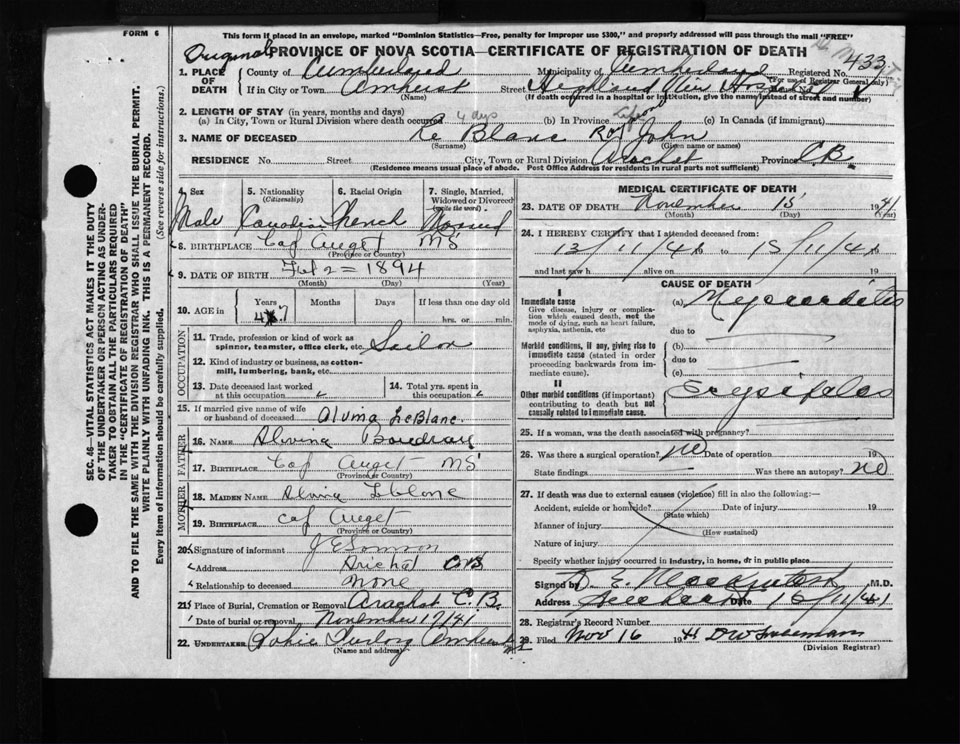 FORM 6
This form if placed in an envelope, marked "Dominion Statistics—Free, penalty for improper use $300," and properly addressed will pass through the mail "FREE"
Original PROVINCE OF NOVA SCOTIA—CERTIFICATE OF REGISTRATION OF DEATH
1. PLACE OF DEATH
County of Cumberland Municipality of Cumberland Registered No. 433
(For use of Registrar General only)
If in City or Town Amherst Street Highland View Hospital
(Name) (If death occurred in a hospital or institution, give the name instead of street and number)
2. LENGTH OF STAY (in years, months and days)
(a) In City, Town or Rural Division where death occurred 4 dys (b) In Province Life (c) In Canada (if immigrant)
3. NAME OF DECEASED Le Blanc Roy John
(Surname) (Given name or names)
RESIDENCE No. Street City, Town or Rural Division Arachat Province C.B.
(Residence means usual place of abode. Post Office Address for residents in rural parts not sufficient)
4. Sex Male
5. Nationality (Citizenship) Canadian
6. Racial Origin French
7. Single, Married, Widowed or Divorced (write the word) Married
8. BIRTHPLACE Cap Auget NS
(Province or Country)
9. DATE OF BIRTH Feb 2 = 1894
(Month) (Day) (Year)
10. AGE in Years 47 Months Days If less than one day old
hrs. or min.
OCCUPATION
11. Trade, profession or kind of work as spinner, teamster, office clerk, etc. Sailor
12. Kind of industry or business, as cotton-mill, lumbering, bank, etc.
13. Date deceased last worked at this occupation
14. Total yrs. spent in this occupation
15. If married give name of wife or husband of deceased Alvina LeBlanc
FATHER
16. NAME Alvina Boudrau
17. BIRTHPLACE Cap Auget NS
(Province or Country)
MOTHER
18. MAIDEN NAME Alvina Leblanc
19. BIRTHPLACE Cap Auget
(Province or Country)
20. Signature of informant
Address Arichat CB
Relationship to deceased None
21. Place of Burial, Cremation or Removal Arachat C.B.
Date of burial or removal November 17/41
22. UNDERTAKER Amherst NS
(Name and address)
MEDICAL CERTIFICATE OF DEATH
23. DATE OF DEATH November 15 1941
(Month) (Day) (Year)
24. I HEREBY CERTIFY that I attended deceased from:
13/11/41 to 15/11/41
and last saw h alive on 19
CAUSE OF DEATH
I
Immediate cause
Give disease, injury or complication which caused death, not the mode of dying, such as heart failure, asphyxia, asthenia, etc
(a) Myocarditis
due to
Morbid conditions, if any, giving rise to immediate cause (stated in order proceeding backwards from immediate cause).
(b)
due to
(c)
II
Other morbid conditions (if important) contributing to death but not causally related to immediate cause.
Erysipelas
25. If a woman, was the death associated with pregnancy?
26. Was there a surgical operation? no Date of operation 19
State findings Was there an autopsy? no
27. If death was due to external causes (violence) fill in also the following:—
Accident, suicide or homicide? Date of injury 19
(State which)
Manner of injury
(How sustained)
Nature of injury
Specify whether injury occurred in industry, in home, or in public place
Signed by D. E. M.D.
Address Date 15/11/41
28. Registrar's Record Number
29. Filed Nov 16 1941
(Division Registrar)
SEC. 46—VITAL STATISTICS ACT MAKES IT THE DUTY
OF THE UNDERTAKER OR PERSON ACTING AS UNDER-
TAKER TO OBTAIN ALL THE PARTICULARS REQUIRED
IN THE "CERTIFICATE OF REGISTRATION OF DEATH"
AND TO FILE THE SAME WITH THE DIVISION REGISTRAR WHO SHALL ISSUE THE BURIAL PERMIT.
WRITE PLAINLY WITH UNFADING INK. THIS IS A PERMANENT RECORD.
Every item of Information should be carefully supplied. (See reverse side for instructions.)